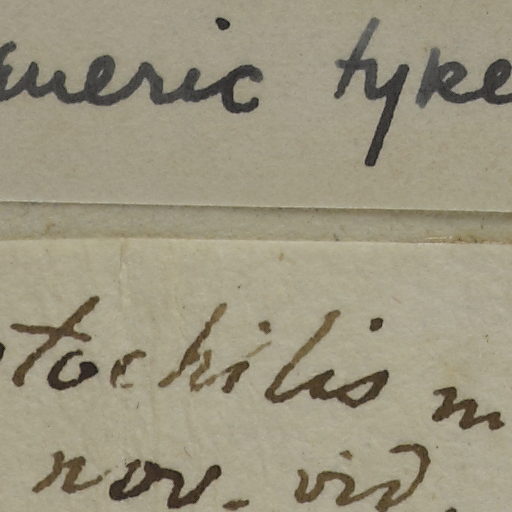 aneric type
tochilis m
nov. vid.